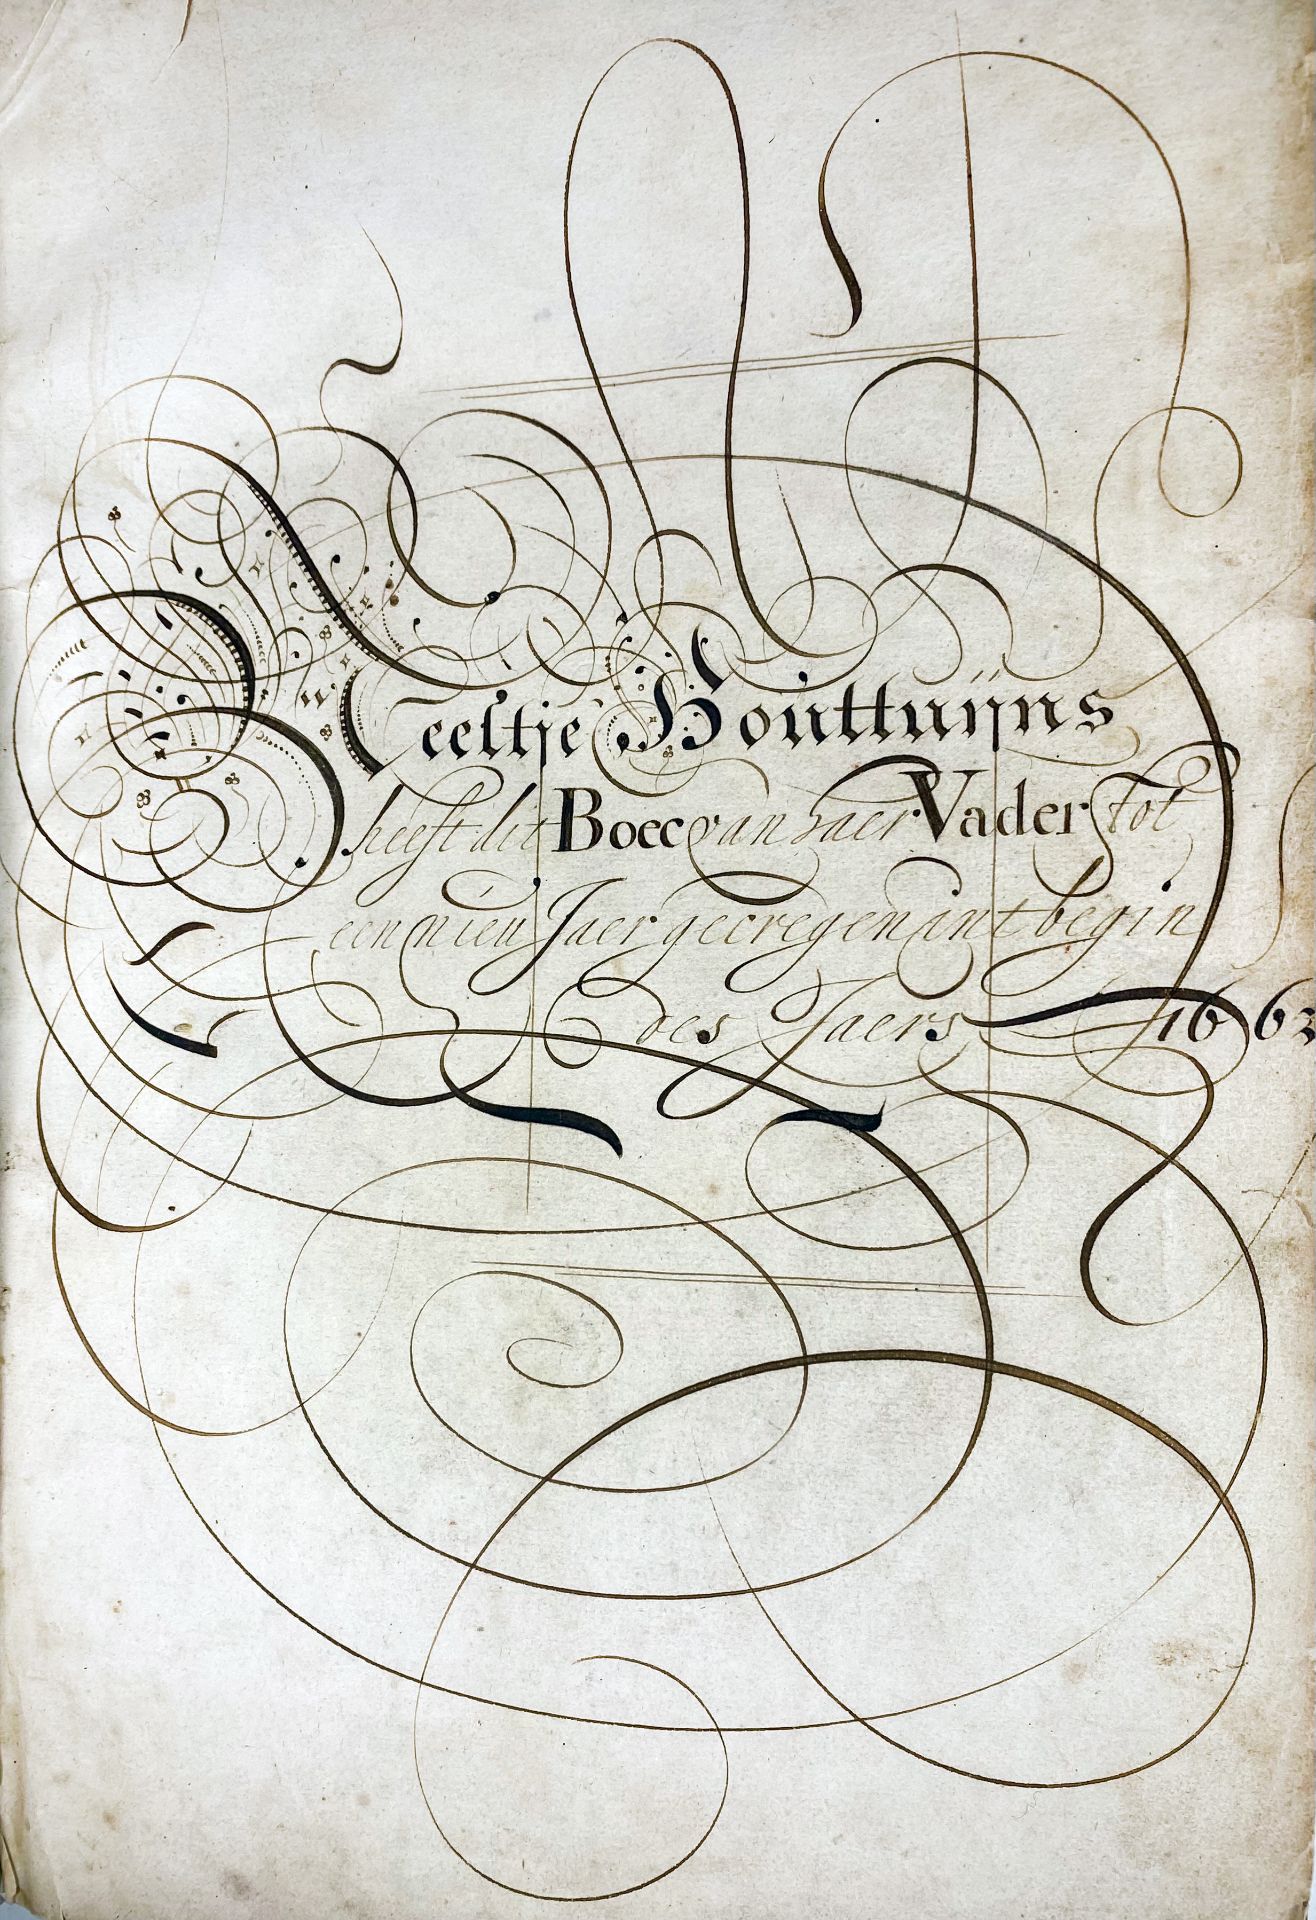 Neeltje Houttuijns
heeft dit Boec van haer Vader tot
een nieu Jaer gecregen int begin
des Jaers 1663